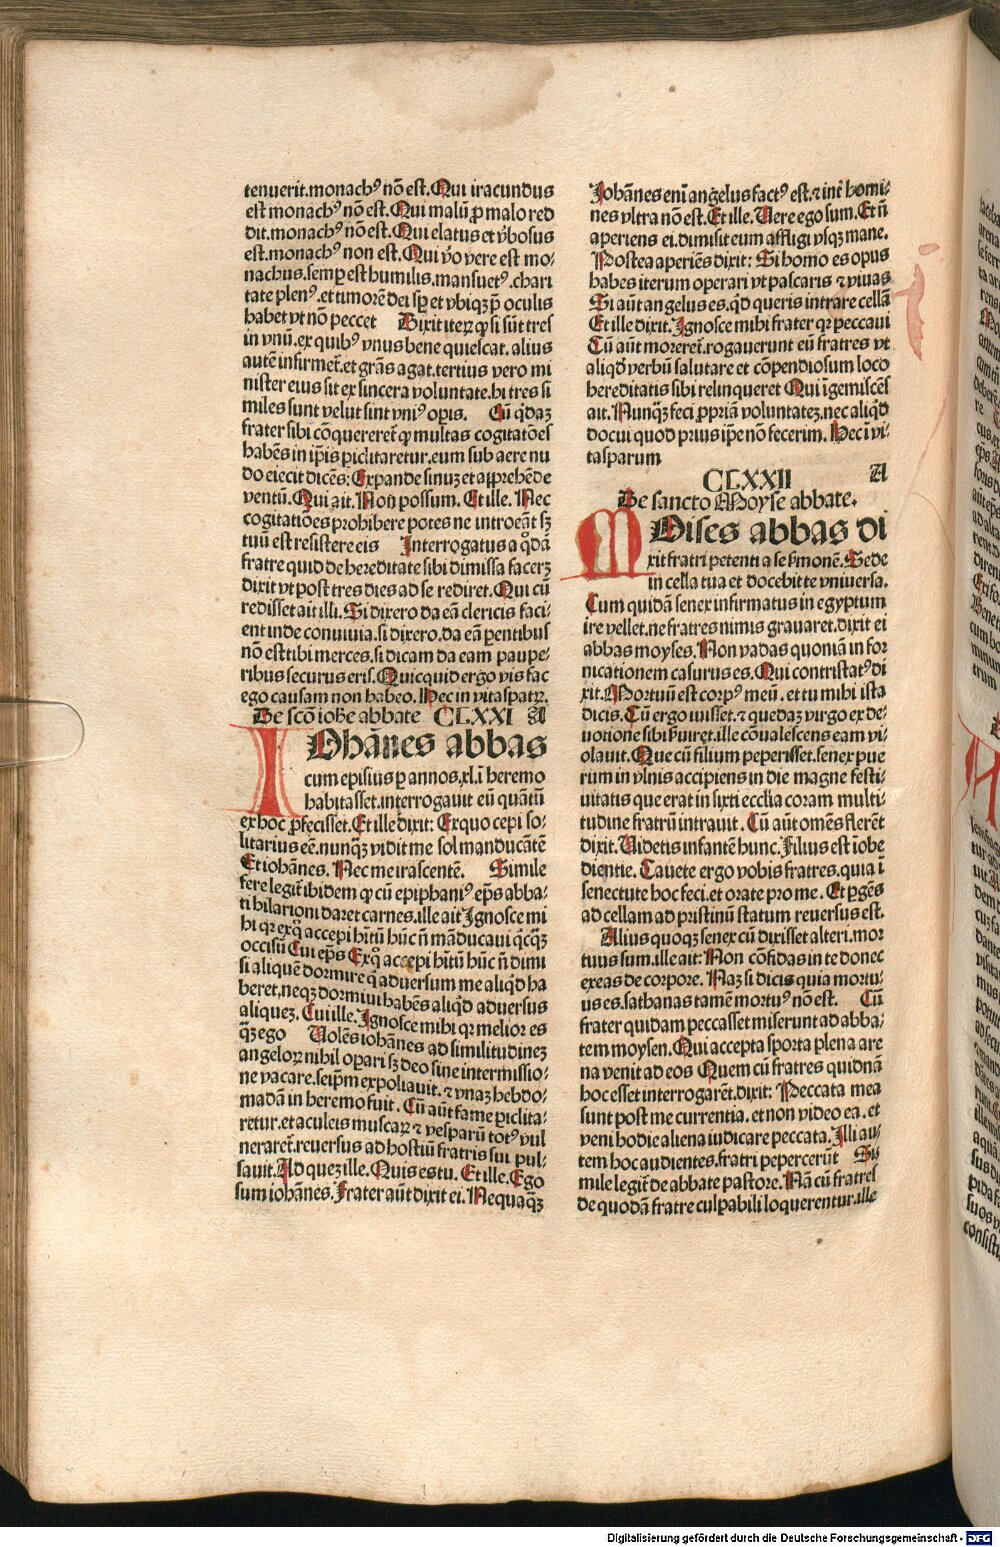 tenuerit.monachꝰ nõ est. Qui iracundus
est monachꝰ nõ est. Qui malũ ꝓ malo red
dit.monachꝰ nõ est. Qui elatus et ỽbosus
est.monachꝰ non est. Qui ỽo vere est mo⸗
nachus.semꝑ est humilis.mansuetꝰ.chari
tate plenꝰ.et timorẽ dei sꝑ et vbiqꝫ p̃ oculis
habet vt nõ peccet Dixit iteꝝ ꝙ si sũt tres
in vnũ.ex quibꝰ vnus bene quiescat. alius
autẽ infirmet̃.et grãs agat.tertius vero mi
nister eius sit ex sincera voluntate.hi tres si
miles sunt velut sint vniꝰ oꝑis. Cũ qͥdaꝫ
frater sibi cõquereret̃ ꝙ multas cogitatões
habẽs in ip̃is ꝑiclitaretur.eum sub aere nu
do eiecit dicẽs: Expande sinuꝫ et apprehẽde
ventũ. Qui ait. Non possum. Et ille. Nec
cogitatiões prohibere potes ne introeãt sꝫ
tuũ est resistere eis Interrogatus a qͦdã
fratre quid de hereditate sibi dimissa facerꝫ
dixit vt post tres dies ad se rediret. Qui cũ
redisset ait illi. Si dixero da eã clericis faci⸗
ent inde conuiuia.si dixero.da eã ꝑentibus
nõ est tibi merces.si dicam da eam paupe⸗
ribus securus eris. Quicquid ergo vis fac
ego causam non habeo. Hec in vitaspatꝝ.
De scõ ioħe abbate CLXXI A
IOhãnes abbas
cum episius ꝑ annos.xl.ĩ heremo
habitasset.interrogauit eũ quãtũ
ex hoc ꝓfecisset. Et ille dixit: Exquo cepi so⸗
litarius eẽ.nunqꝫ vidit me sol manducãtẽ
Et iohãnes. Nec me irascentẽ. Simile
fere legit̃ ibidem ꝙ cũ epiphaniꝰ ep̃s abba⸗
ti hilarioni daret carnes.ille ait Ignosce mi
hi qꝛ exqͦ accepi hĩtũ hũc ñ mãducaui qͥcqꝫ
occisũ Cui ep̃s Exqͦ accepi hĩtũ hũc ñ dimi
si aliquẽ dormire qͥ aduersum me aliqͥd ha
beret.neqꝫ dormiui habẽs aliqͥd aduersus
aliqueꝫ. Cui ille. Ignosce mihi qꝛ melior es
qꝫ ego Volẽs iohãnes ad similitudineꝫ
angeloꝝ nihil oꝑari sꝫ deo sine intermissio⸗
ne vacare.seip̃m expoliauit.⁊ vnaꝫ hebdo⸗
madã in heremo fuit. Cũ aũt fame ꝑiclita⸗
retur.et aculeis muscaꝝ ⁊ vesparũ totꝰ vul
neraret̃.reuersus ad hostiũ fratris sui pul⸗
sauit. Ad queꝫ ille. Quis es tu. Et ille. Ego
sum iohãnes. Frater aũt dixit ei. Nequaqꝫ
Johãnes eni angelus factꝰ est.⁊ int̃ homi⸗
nes vltra nõ est. Et ille. Vere ego sum. Et ñ
aperiens ei.dimisit eum affligi vsqꝫ mane.
Postea aperiẽs dixit: Si homo es opus
habes iterum operari vt pascaris ⁊ viuas
Si aũt angelus es.qͥd queris intrare cellã
Et ille dixit. Ignosce mihi frater qꝛ peccaui
Cũ aũt moreret̃.rogauerunt eũ fratres vt
aliqͥd verbũ salutare et cõpendiosum loco
hereditatis sibi relinqueret Qui ĩgemiscẽs
ait. Nunqꝫ feci ꝓpriã voluntateꝫ.nec aliqͥd
docui quod prius ip̃e nõ fecerim. Hec ĩ vi⸗
tasparum
CLXXII A
De sancto Moyse abbate.
MOises abbas di
xit fratri petenti a se ẜmonẽ. Sede
in cella tua et docebit te vniuersa.
Cum quidã senex infirmatus in egyptum
ire vellet.ne fratres nimis grauaret.dixit ei
abbas moyses. Non vadas quoniã in for
nicationem casurus es. Qui contristatꝰ di
xit. Mortuũ est corpꝰ meũ.et tu mihi ista
dicis. Cũ ergo iuisset.⁊ quedaꝫ virgo ex de⸗
uotione sibi ẜuiret.ille cõualescens eam vi⸗
olauit. Que cũ filium peperisset.senex pue
rum in vlnis accipiens in die magne festi⸗
uitatis que erat in sixti ecclĩa coram multi⸗
tudine fratrũ intrauit. Cũ aũt omẽs flerẽt
dixit. Videtis infantẽ hunc. Filius est ĩobe
dientie. Cauete ergo vobis fratres.quia ĩ
senectute hoc feci.et orate pro me. Et ꝑgẽs
ad cellam ad pristinũ statum reuersus est.
Alius quoqꝫ senex cũ dixisset alteri.mor
tuus sum.ille ait: Non cõfidas in te donec
exeas de corpore. Naꝫ si dicis quia mortu⸗
us es.sathanas tamẽ mortuꝰ nõ est. Cũ
frater quidam peccasset miserunt ad abba⸗
tem moysen. Qui accepta sporta plena are
na venit ad eos Quem cũ fratres quidnã
hoc esset interrogarẽt.dixit: Peccata mea
sunt post me currentia.et non video ea.et
veni hodie aliena iudicare peccata. Illi au⸗
tem hoc audientes.fratri pepercerũt Si⸗
mile legit̃ de abbate pastore. Nã cũ fratres
de quodã fratre culpabili loquerentur.ille
Digitalisierung gefördert durch die Deutsche Forschungsgemeinschaft - DFG